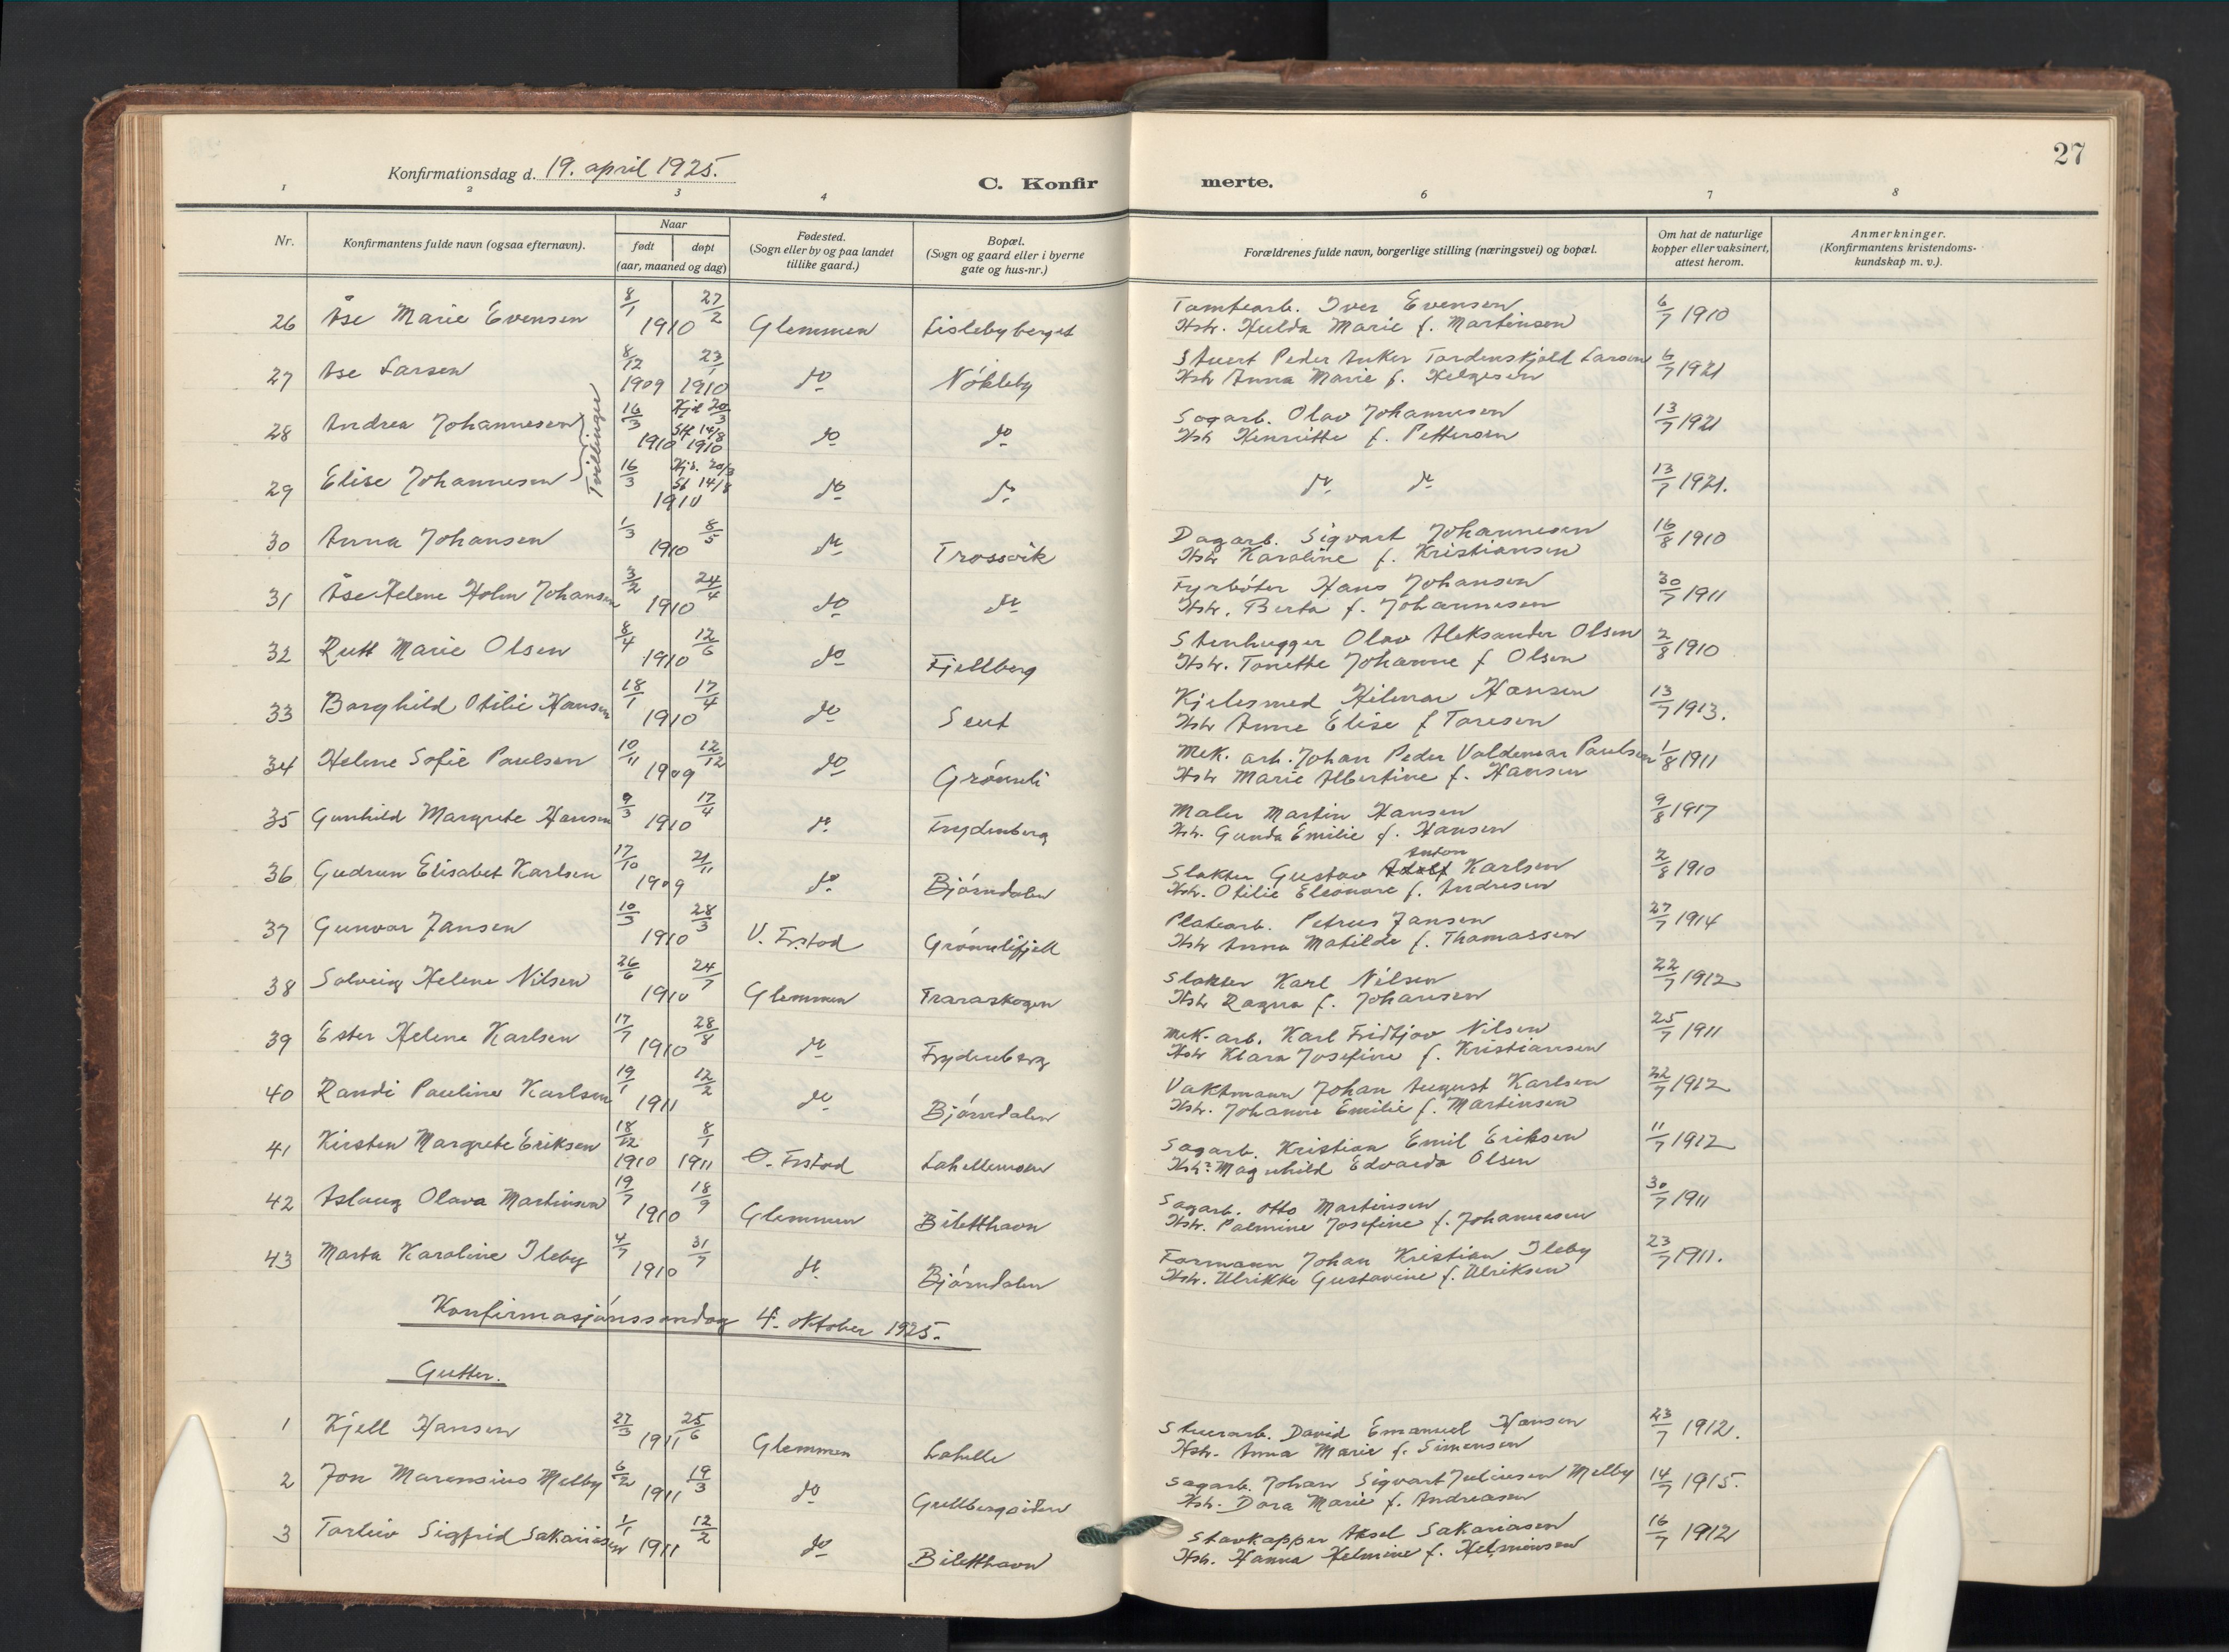 27
Konfirmationsdag d. 19. april 1925.
C. Konfirmerte.
1 2 3 4 6 7 8
Nr.
Konfirmantens fulde navn (ogsaa efternavn).
Naar
født døpt
(aar, maaned og dag)
Fødested.
(Sogn eller by og paa landet
tillike gaard.)
Bopæl.
(Sogn og gaard eller i byerne
gate og hus-nr.)
Forældrenes fulde navn, borgerlige stilling (næringsvei) og bopæl.
Om hat de naturlige
kopper eller vaksinert,
attest herom.
Anmerkninger.
(Konfirmantens kristendoms-
kundskap m. v.).
26 Åse Marie Evensen 8/1 27/2 1910 Glemmen Lislebyberget Tomtearb. Iver Evensen 6/7 1910
Hstr. Hulda Marie f. Martinsen
27 Åse Larsen 8/12 1909 23/1 1910 do Nökleby Stuert Peder Anker Tordenskjold Larsen 6/7 1921
Hstr Anna Marie f. Helgesen
28 Andrea Johannesen 16/3 1910 Hjd 20/3 Stf 14/8 1910 do do Sagarb. Olav Johannesen 13/7 1921
Hstr Henriette f. Pettersen
Tvillinger
29 Elise Johannesen 16/3 Hjd. 20/3 St 14/8 1910 do do do do 13/7 1921.
30 Anna Johansen 1/3 8/5 1910 do Trossvik Dagarb. Sigvart Johannesen 16/8 1910
Hstr Karoline f. Kristiansen
31 Åse Helene Holm Johansen 3/2 24/4 1910 do do Fyrböter Hans Johansen 30/7 1911
Hstr. Berta f. Johannesen
32 Rutt Marie Olsen 8/4 12/6 1910 do Fjellberg Stenhugger Olav Aleksander Olsen 2/8 1910
Hstr. Tonette Johanne f Olsen
33 Borghild Otilie Hansen 18/1 17/4 1910 do Seut Kjelesmed Hilmar Hansen 13/7 1913.
Hstr Anne Elise f Toresen
34 Helene Sofie Paulsen 10/11 12/12 1909 do Grönnli Mek. arb. Johan Peder Valdemar Paulsen 1/8 1911
Hstr Marie Albertine f. Hansen
35 Gunhild Margrete Hansen 9/3 17/4 1910 do Frydenberg Maler Martin Hansen 9/8 1917
Hstr. Gunda Emilie f. Hansen
36 Gudrun Elisabet Karlsen 17/10 21/11 1909 do Björndalen Slakter Gustav Adolf Anton Karlsen 2/8 1910
Hstr. Otilie Eleonore f. Andresen
37 Gunvor Jansen 10/3 28/3 1910 V. Fr.stad Grönnlifjell Platearb. Petrus Jansen 27/7 1914
Hstr Anna Matilde f. Thomassen
38 Solveig Helene Nilsen 26/6 24/7 1910 Glemmen Traraskogen Slakter Karl Nilsen 22/7 1912
Hstr Ragna f. Johansen
39 Ester Helene Karlsen 17/7 28/8 1910 do Frydenberg Mek. arb. Karl Fridtjov Nilsen 25/7 1911
Hstr Klara Josefine f. Kristiansen
40 Randi Pauline Karlsen 19/1 12/2 1911 do Björndalen Vaktmann Johan August Karlsen 22/7 1912
Hstr. Johanne Emilie f. Martinsen
41 Kirsten Margrete Eriksen 18/12 1910 8/1 1911 Ö. Frstad Lahellemoen Sagarb. Kristian Emil Eriksen 11/7 1912
Hstr. Magnhild Edvarda Olsen
42 Aslaug Olava Martinsen 19/7 18/9 1910 Glemmen Biletthavn Sagarb. Otto Martinsen 30/7 1911
Hstr. Palmine Josefine f. Johannesen
43 Marta Karoline Ileby 4/7 31/7 1910 do Björndalen Formann Johan Kristian Ileby 23/7 1911.
Hstr. Ulrikke Gustavine f. Ulriksen
Konfirmasjónssöndag 4. oktober 1925.
Gutter.
1 Kjell Hansen 27/3 25/6 1911 Glemmen Lahelle Stuerarb. David Emanuel Hansen 23/7 1912.
Hstr. Anna Marie f. Simensen
2 Jon Marensius Melby 6/2 19/3 1911 do Gullbergseiden Sagarb. Johan Sigvart Juliusen Melby 14/7 1915.
Hstr. Dora Marie f. Andreasen
3 Torleiv Sigfrid Sakariasen 1/1 12/2 1911 do Biletthavn Stavkapper Aksel Sakariasen 16/7 1912
Hstr. Hanna Helmine f. Helmersen